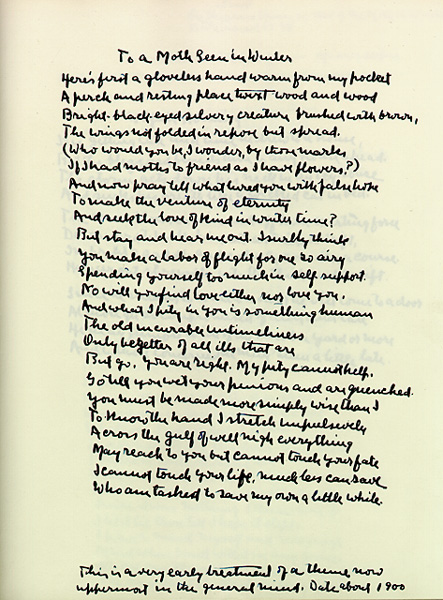 To a Moth Seen in Winter
Here's first a gloveless hand warm from my pocket
A perch and resting place twixt wood and wood
Bright-black-eyed silvery creature brushed with brown,
The wings not folded in repose but spread.
(Who would you be, I wonder, by those marks
If I had moths to friend as I have flowers?)
And now pray tell what lured you with false hope
To make the venture of eternity
And seek the love of kind in winter time?
But stay and hear me out. I surely think
You make a labor of flight for one so airy
Spending yourself too much in self support.
No will you find love either nor love you.
And what I pity in you is something human
The old incurable untimeliness
Only begetter of all ills that are
But go. You are right. My pity cannot help.
Go till you wet your pinions and are quenched.
You must be made more simply wise than I
To know the hand I stretch impulsively
Across the gulf of well nigh everything
May reach to you but cannot touch your fate
I cannot touch your life, much less can save
Who am tasked to save my own a little while.
This is a very early treatment of a theme now
uppermost in the general mind. Date about 1900